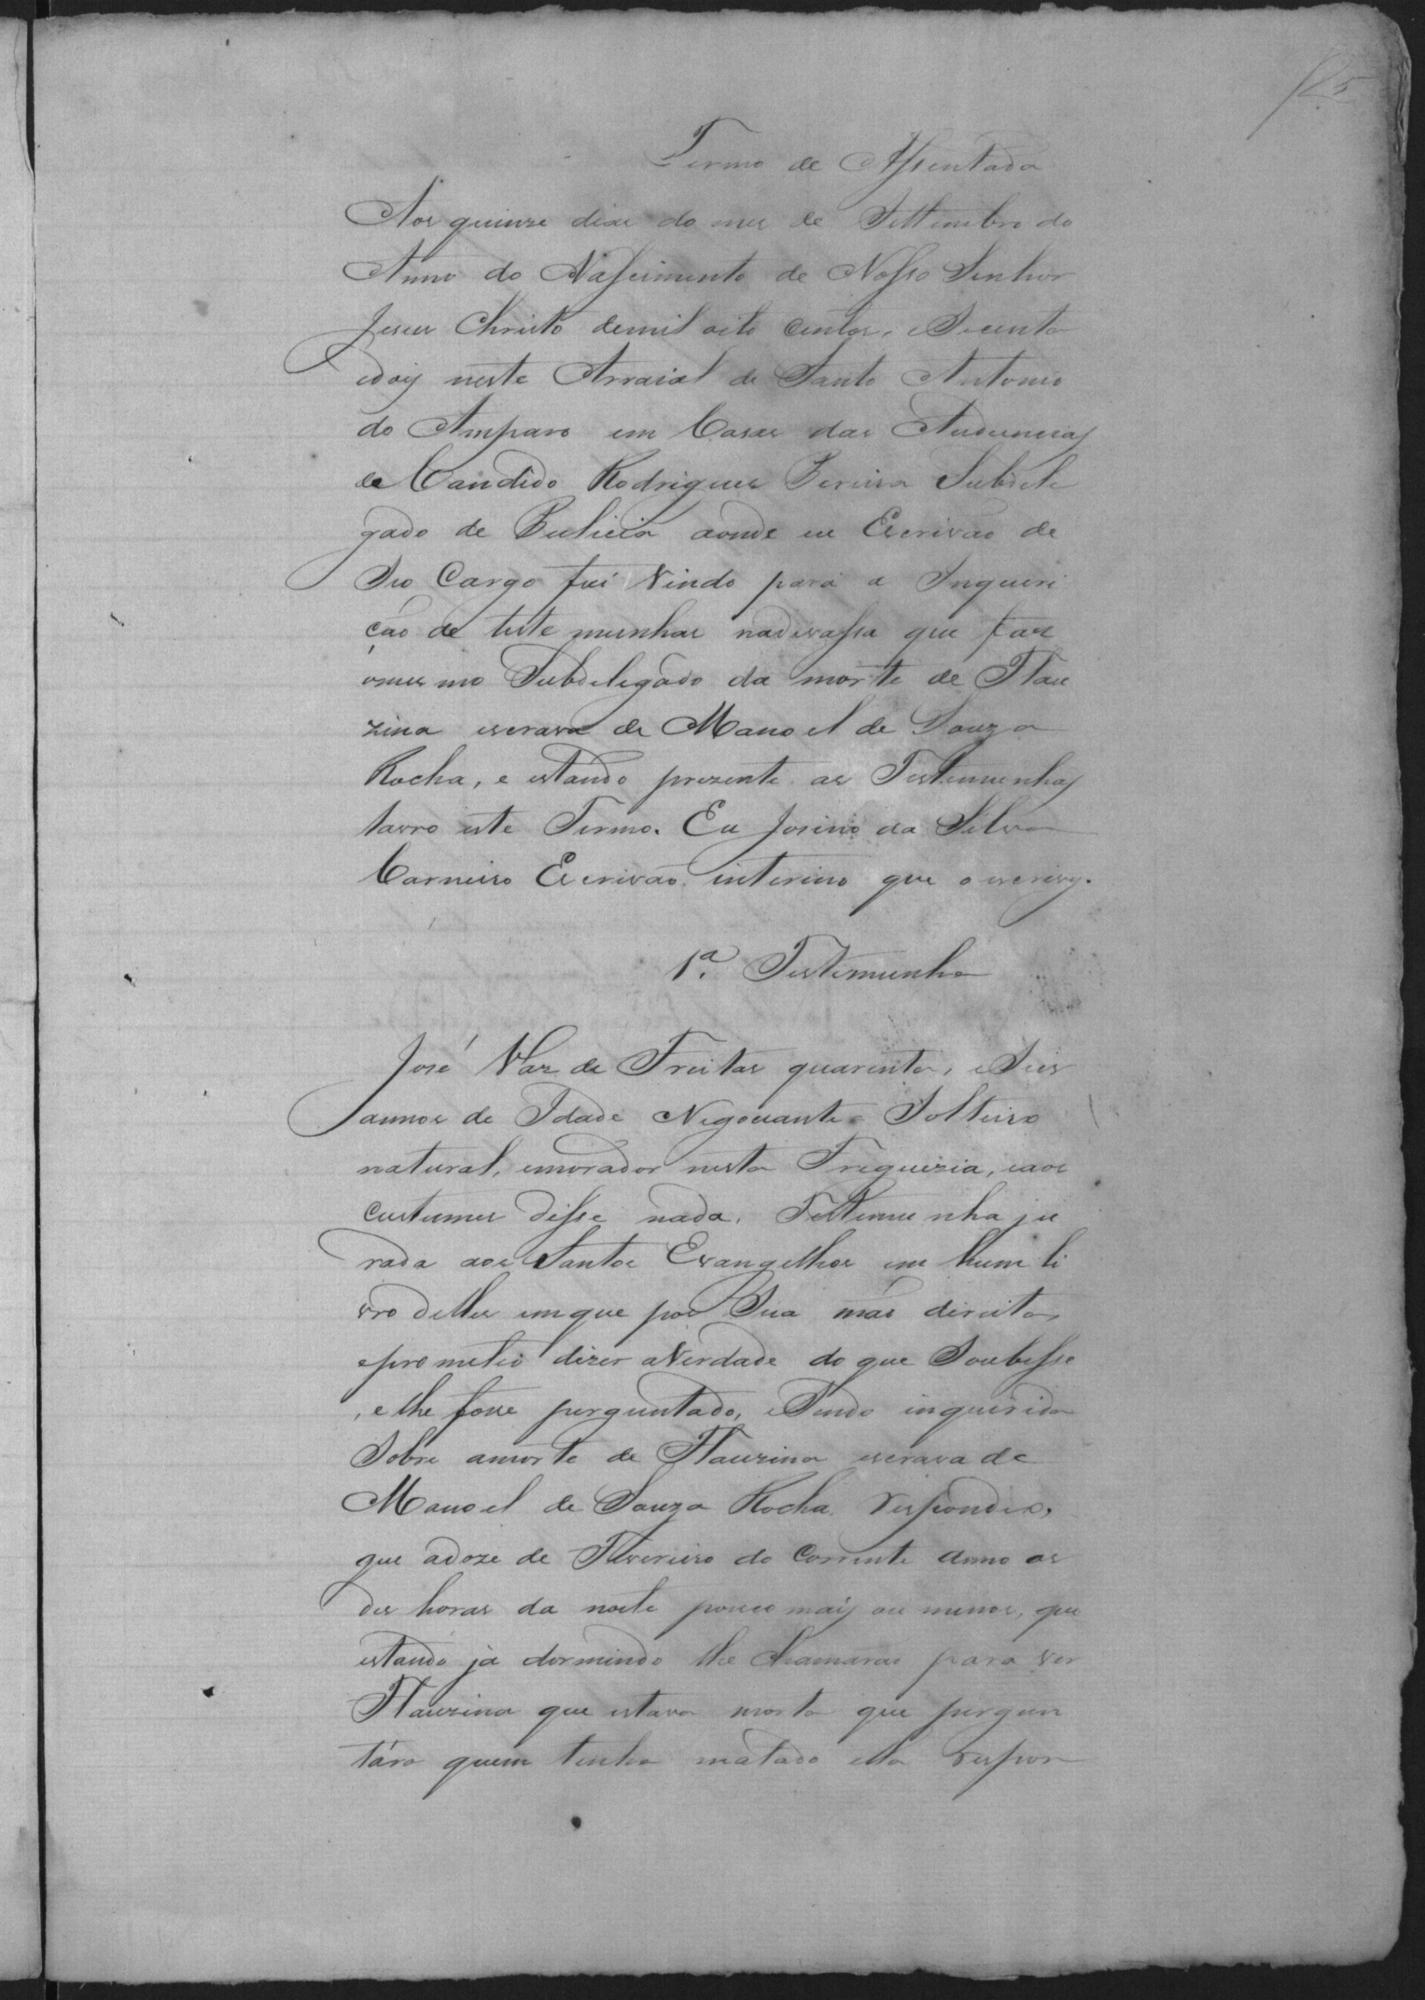 Termo de Assentada
Aos quinze dias do mes de Settembro do
Anno do Nascimento de Nosso Senhor
Jesus Christo demil oito centos, eSecenta
edois neste Arraial de Santo Antonio
do Amparo em Casas das Audiencias
de Candido Rodrigues Pereira Subdele
gado de Pulicia aonde eu Escrivão de
Seo Cargo fui Vindo para a Inqueri
ção de teste munhas nadevassa que faz
omes mo Subdelegado da morte de Flau
zina escrava de Manoel de Souza
Rocha, e estando prezente as Testemunhas
lavro este Termo. Eu Josino da Silva
Carneiro Escrivão interino que o escrevy.
1ª. Testemunha
José Vaz de Freitas quarenta, eSeis
annos de Idade Negociante Solteiro
natural, emorador nesta Freguizia, eaos
custumes disse nada, Testemunha ju
rada aos Santos Evangelhos em hum li
vro delles emque pos Sua mão direita
eprometeo dizer aVerdade do que Soubesse
, e lhe fosse perguntado, eSendo inquerida
Sobre amorte de Flauzina escrava de
Manoel de Souza Rocha. respondeo,
que adoze de Fevereiro do Corrente anno as
des horas da noite pouco mais ou menos, que
estando já dormindo lhe chamarão para ver
Flauzina que estava morta que pergun
tára quem tenha matado ella respon